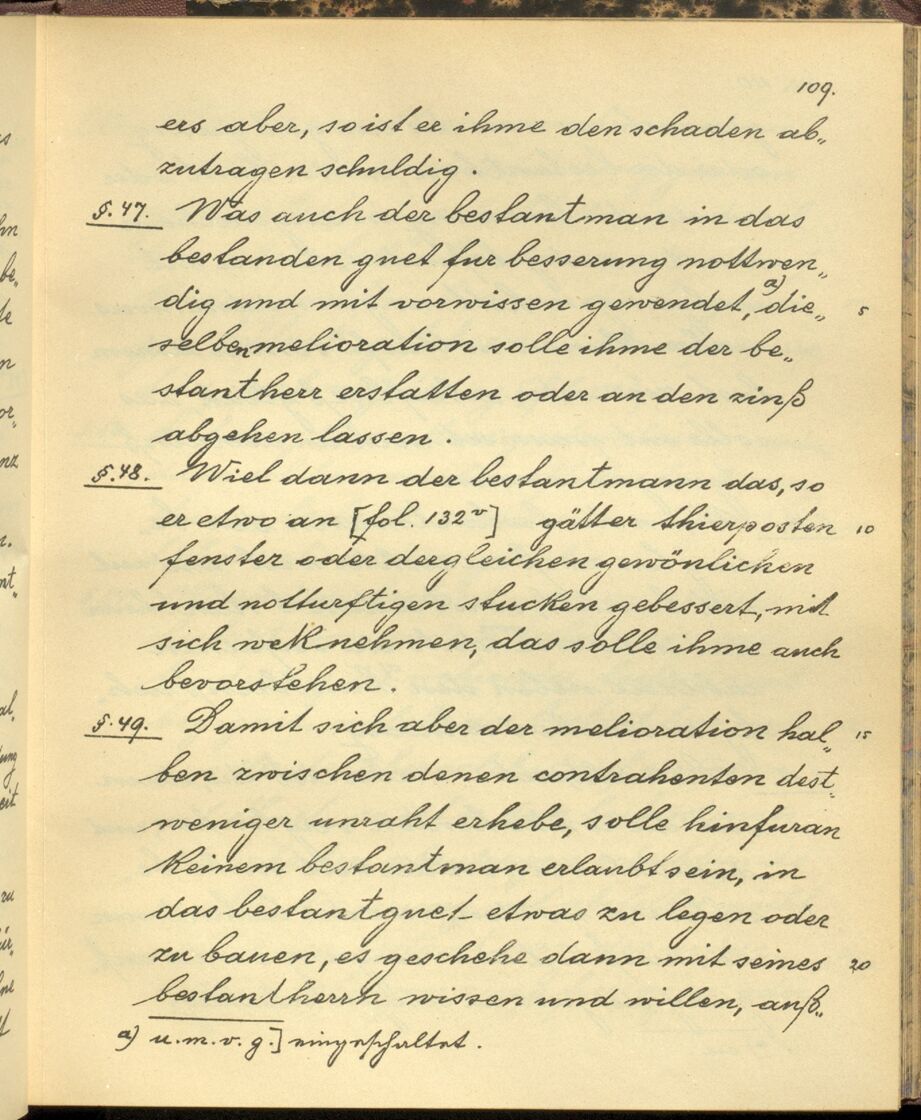 109.
ers aber, so ist er ihme den schaden ab„
zutragen schuldig.
§. 47. Was auch der bestantman in das
bestanden guet fur besserung nottwen„
dig und mit vorwissen gewendet, a) die„ 5
selben melioration solle ihme der be„
stantherr erstatten oder an den zinß
abgehen lassen.
§. 48. Wiel dann der bestantmann das, so
er etwo an [fol. 132v] gätter thierposten 10
fenster oder dergleichen gewönlichen
und notturftigen stucken gebessert, mit
sich weknehmen, das solle ihme auch
bevorstehen.
§. 49. Damit sich aber der melioration hal„ 15
ben zwischen denen contrahenten dest„
weniger unraht erhebe, solle hinfuran
keinem bestantman erlaubt sein, in
das bestantguet etwas zu legen oder
zu bauen, es geschehe dann mit seines 20
bestantherrn wissen und willen, auß„
a) u. m. v. g.] eingeschaltet.